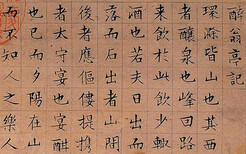 醉翁亭記
環滁皆山也其西
者釀泉也峰回
來飲於此飲
酒也若夫日
落而石出者山間
後者應傴僂提攜
者太守宴也酣
也已而夕陽在山
而不知人之樂人